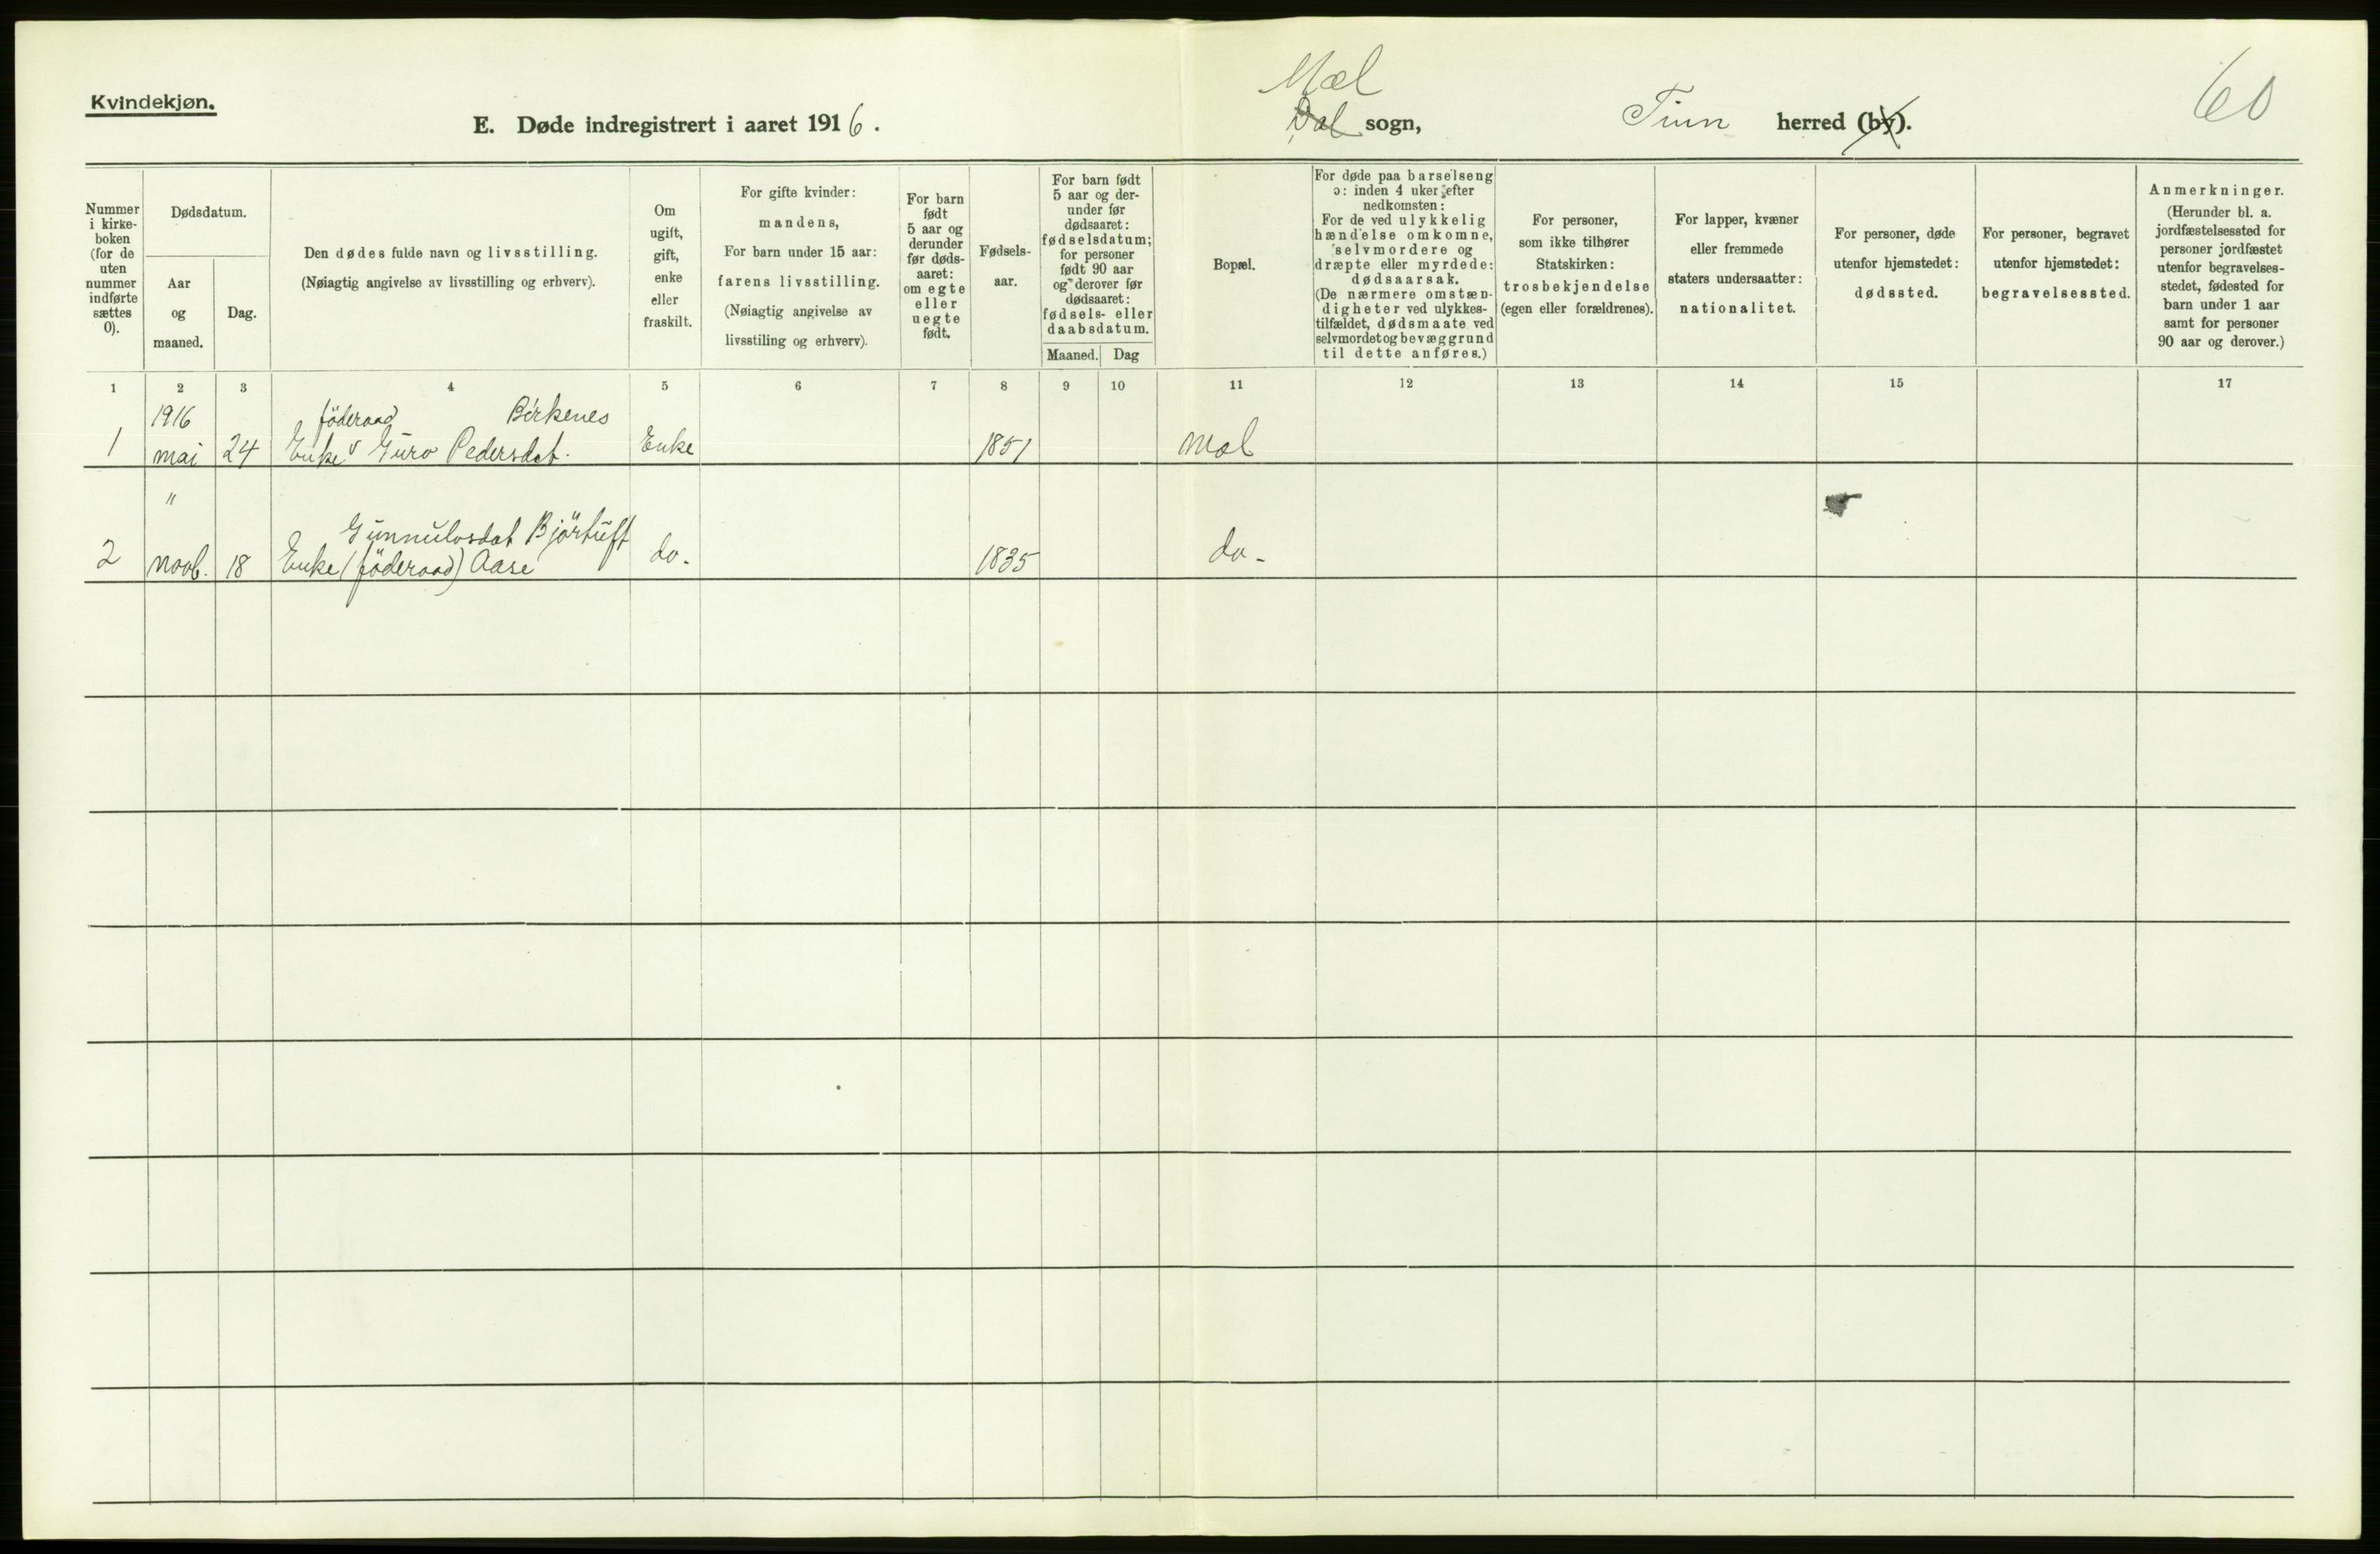 Kvindekjøn.
E. Døde indregistrert i aaret 1916.
Mæl
Dal sogn,
Tinn herred (by).
60
Nummer
i kirke-
boken
(for de
uten
nummer
indførte
sættes
0).
Dødsdatum.
Aar
og
maaned.
Dag.
Den dødes fulde navn og livsstilling.
(Nøiagtig angivelse av livsstilling og erhverv).
Om
ugift,
gift,
enke
eller
fraskilt.
For gifte kvinder:
mandens,
For barn under 15 aar:
farens livsstilling.
(Nøiagtig angivelse av
livsstiling og erhverv).
For barn
født
5 aar og
derunder
før døds-
aaret:
om egte
eller
uegte
født.
Fødsels-
aar.
For barn født
5 aar og der-
under før
dødsaaret:
fødselsdatum;
for personer
født 90 aar
og derover før
dødsaaret:
fødsels- eller
daabsdatum.
Maaned. Dag
Bopæl.
For døde paa barselseng
ɔ: inden 4 uker efter
nedkomsten:
For de ved ulykkelig
hændelse omkomne,
selvmordere og
dræpte eller myrdede:
dødsaarsak.
(De nærmere omstæn-
digheter ved ulykkes-
tilfældet, dødsmaate ved
selvmordet og bevæggrund
til dette anføres.)
For personer,
som ikke tilhører
Statskirken:
trosbekjendelse
(egen eller forældrenes).
For lapper, kvæner
eller fremmede
staters undersaatter:
nationalitet.
For personer, døde
utenfor hjemstedet:
dødssted.
For personer, begravet
utenfor hjemstedet:
begravelsessted.
Anmerkninger.
(Herunder bl. a.
jordfæstelsessted for
personer jordfæstet
utenfor begravelses-
stedet, fødested for
barn under 1 aar
samt for personer
90 aar og derover.)
1 2 3 4 5 6 7 8 9 10 11 12 13 14 15 17
1916 föderaad Birkenes
1 mai 24 Enke v Guro Pedersdat. Enke 1851 Mæl
" Gunnulvsdat Björtuft
2 novb. 18 Enke (föderaad) Aase do. 1835 do-